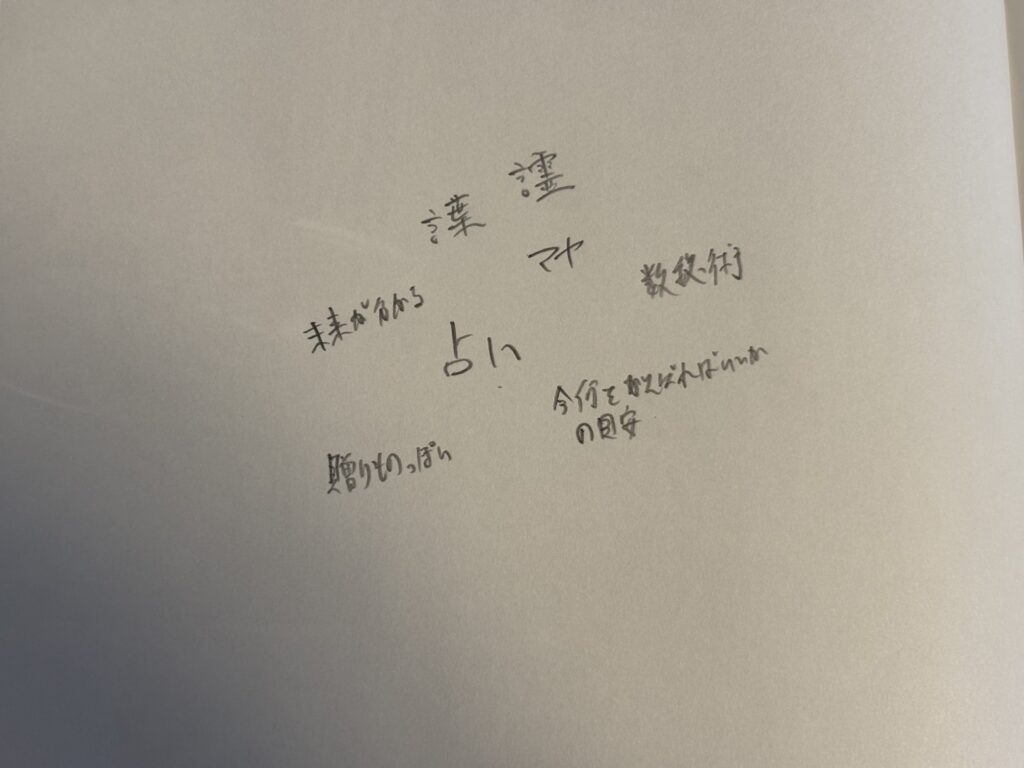 言霊
言葉
マヤ
数秘術
未来が分かる
占い
今何をがんばればいいか
の目安
贈りものっぽい